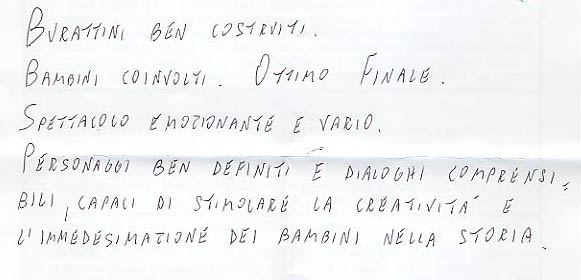 BURATTINI BEN COSTRUITI.
BAMBINI COINVOLTI. OTTIMO FINALE.
SPETTACOLO EMOZIONANTE E VARIO.
PERSONAGGI BEN DEFINITI E DIALOGHI COMPRENSI=
BILI, CAPACI DI STIMOLARE LA CREATIVITÀ E
L'IMMEDESIMAZIONE DEI BAMBINI NELLA STORIA.